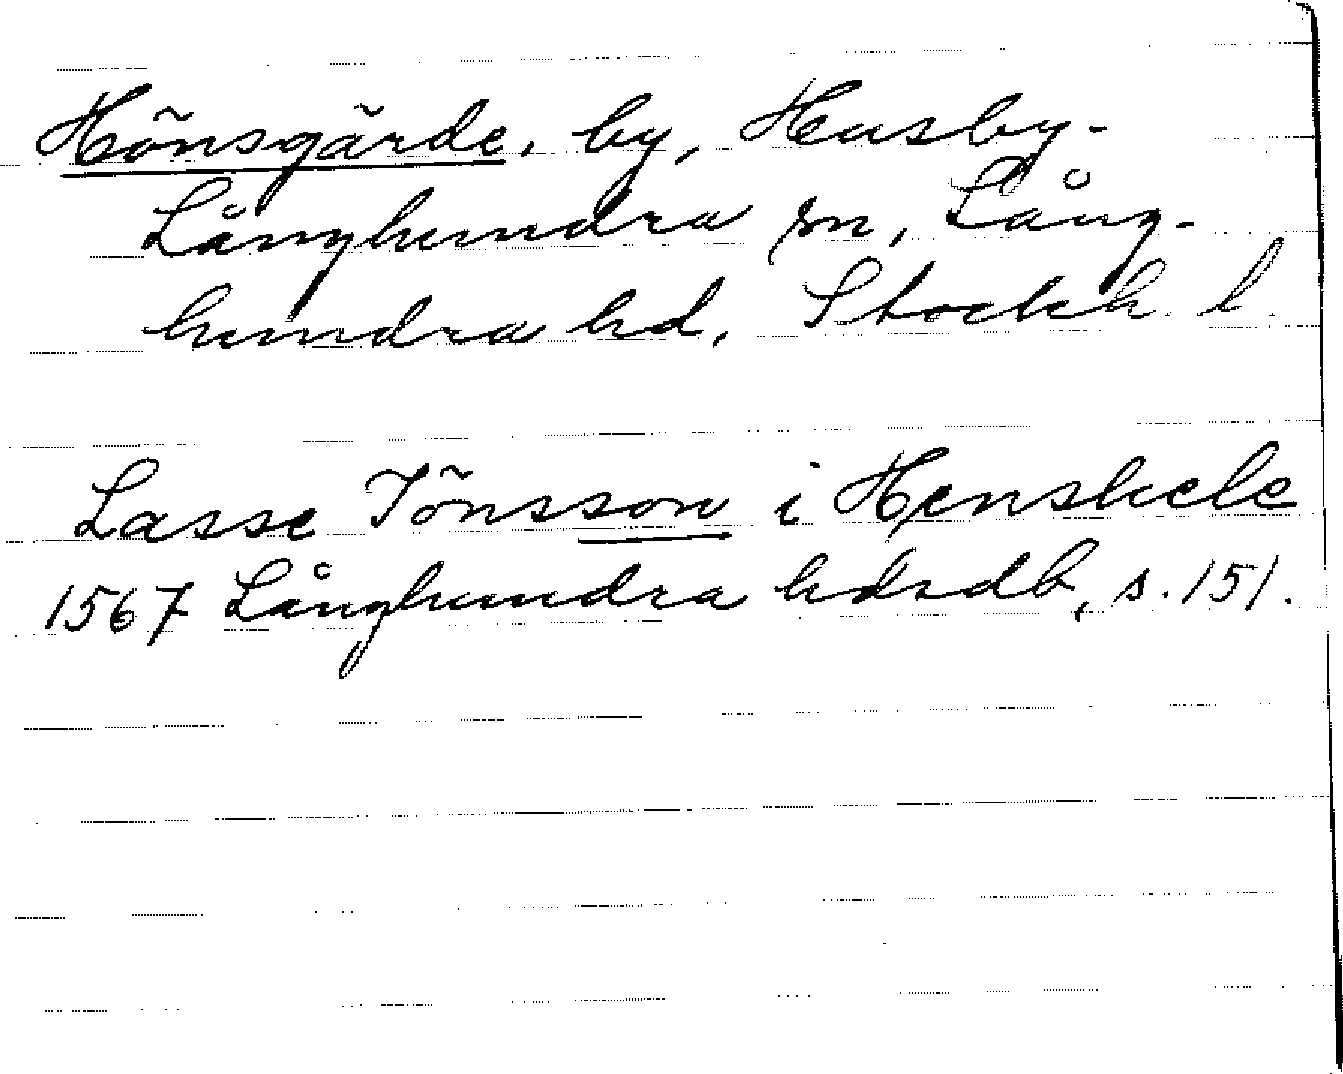 Hönsgärde, by, Husby-
Långhundra sn, Lång-
hundra hd, Stockh. l
Lasse Jönsson i Henskele
1567 Långhundra hdsdb, s. 151.